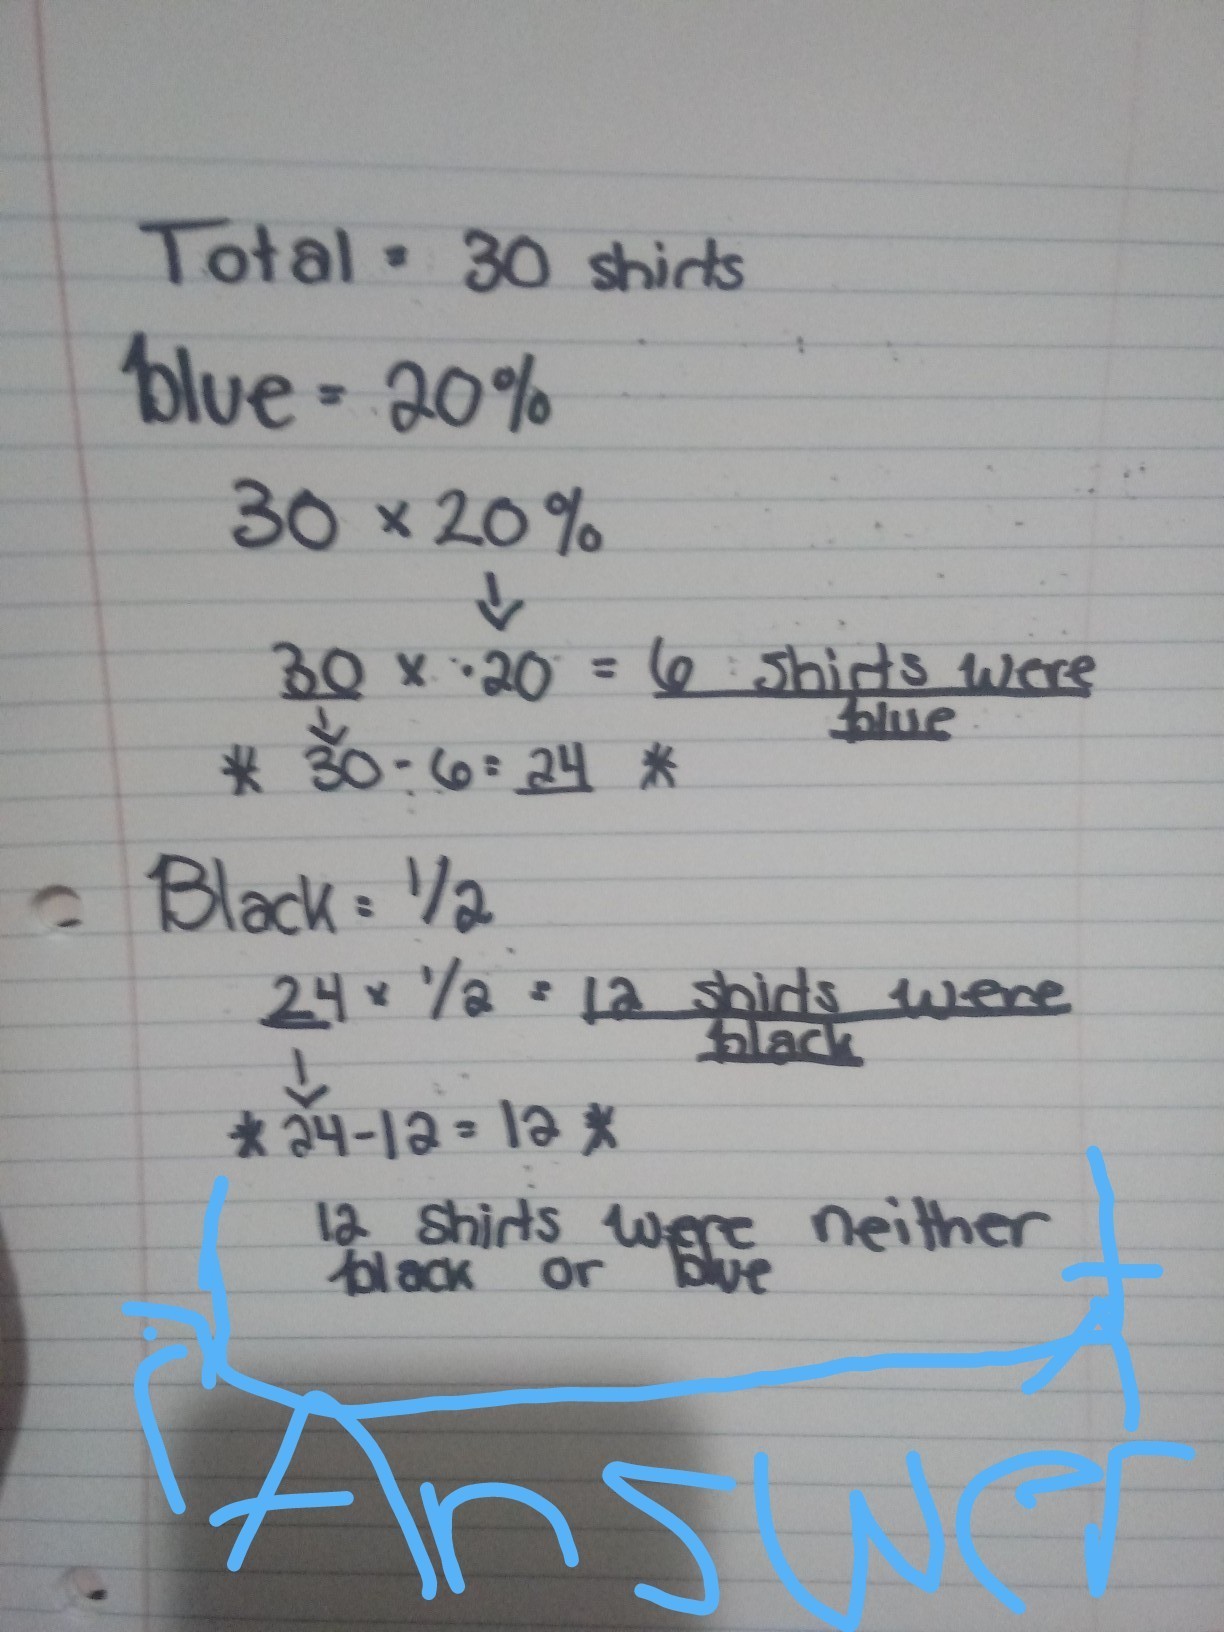 Total = 30 shirts
blue = 20%
30 x 20%
↓
30 x .20 = 6 shirts were
blue
↓
* 30 - 6 = 24 *
Black = 1/2
24 x 1/2 = 12 shirts were
black
↓
* 24 - 12 = 12 *
12 shirts were neither
black or blue
Answer